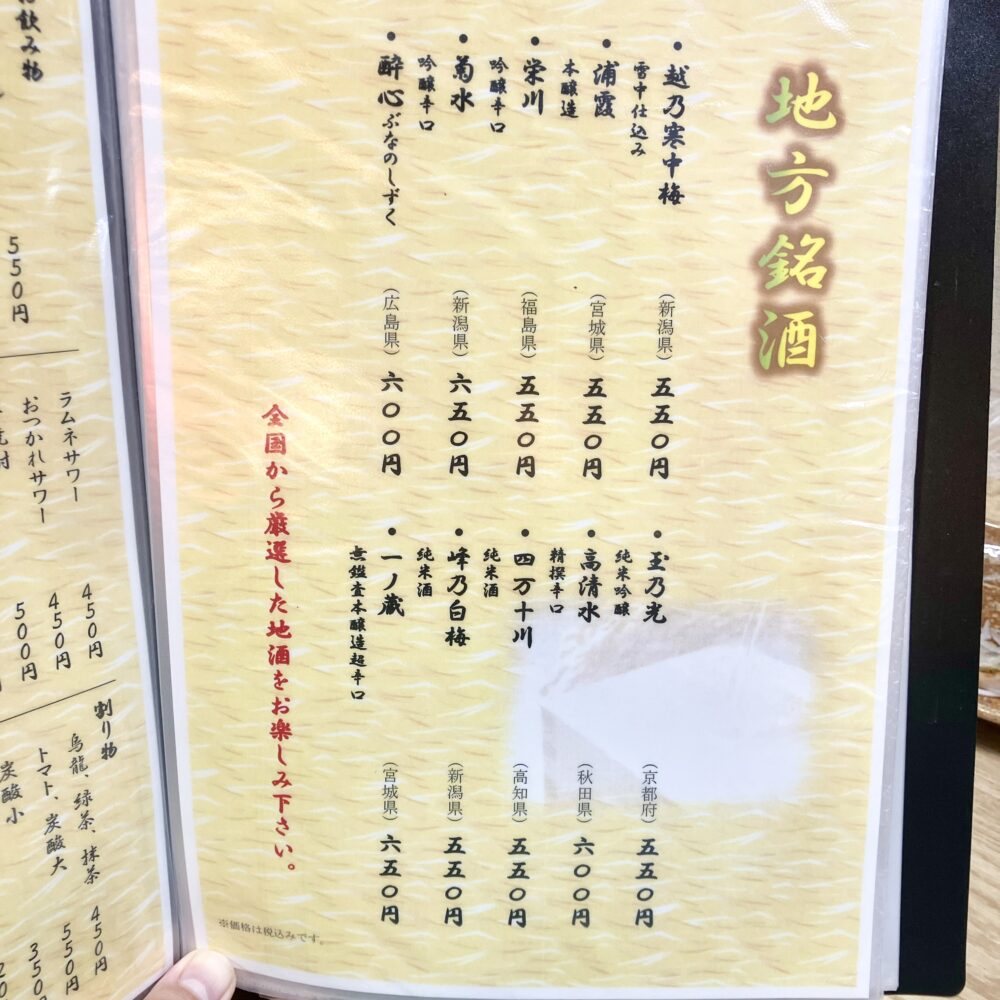 地方銘酒
・越乃寒中梅
雪中仕込み
（新潟県）五五〇円
・浦霞
本醸造
（宮城県）五五〇円
・栄川
吟醸辛口
（福島県）五五〇円
・菊水
吟醸辛口
（新潟県）六五〇円
・酔心ぶなのしずく
（広島県）六〇〇円
・玉乃光
純米吟醸
（京都府）五五〇円
・高清水
精撰辛口
（秋田県）六〇〇円
・四万十川
純米酒
（高知県）五五〇円
・峰乃白梅
純米酒
（新潟県）五五〇円
・一ノ蔵
無鑑査本醸造超辛口
（宮城県）六五〇円
全国から厳選した地酒をお楽しみ下さい。
※価格は税込みです。
飲み物
550円
ラムネサワー 450円
おつかれサワー 450円
500円
割り物
烏龍、緑茶、抹茶 450円
トマト、炭酸大 550円
炭酸小 350円